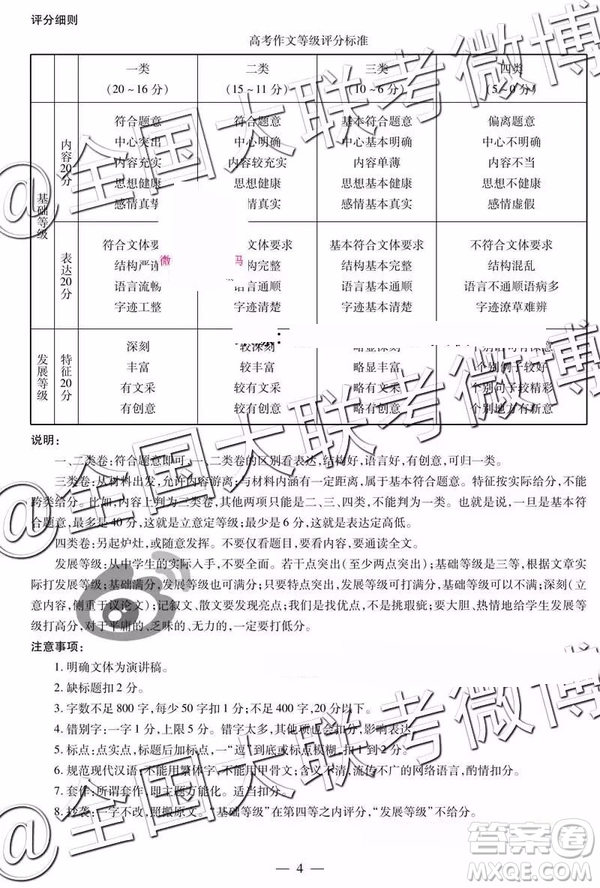 评分细则
高考作文等级评分标准
一类 二类 三类 四类
(20～16分) (15～11分) (10～6分) (5～0分)
基础等级
内容20分
符合题意 符合题意 基本符合题意 偏离题意
中心突出 中心明确 中心基本明确 中心不明确
内容充实 内容较充实 内容单薄 内容不当
思想健康 思想健康 思想基本健康 思想不健康
感情真挚 感情真实 感情基本真实 感情虚假
表达20分
符合文体要求 符合文体要求 基本符合文体要求 不符合文体要求
结构严谨 结构完整 结构基本完整 结构混乱
语言流畅 语言通顺 语言基本通顺 语言不通顺语病多
字迹工整 字迹清楚 字迹基本清楚 字迹潦草难辨
发展等级
特征20分
深刻 较深刻 略显深刻 个别语句有深意
丰富 较丰富 略显丰富 个别例子较好
有文采 较有文采 略有文采 个别句子较精彩
有创意 较有创意 略有创意 个别地方有新意
说明：
一、二类卷：符合题意即可，一、二类卷的区别看表达，结构好，语言好，有创意，可归一类。
三类卷：从材料出发，允许内容游离；与材料内涵有一定距离，属于基本符合题意。特征按实际给分，不能
跨类给分。比如，内容是二类，其他两项只能是二、三、四类，不能判为一类。也就是说，一旦是基本符合
题意，最多是40分，这就是立意定等级；最少是6分，这就是表达定高低。
四类卷：另起炉灶，或随意发挥。不要仅看题目，要通读全文。
发展等级：从中学生的实际入手，不要全面。若干点突出（至少两点突出）；基础等级是三等，根据文章实
际情况，发展等级可上浮到二等；基础等级是四等的，发展等级可上浮到三等，但不能上浮到二等；深刻（立
意、内容，侧重于议论文）；记叙文、散文要发现亮点；我们是找优点，不是挑瑕疵；要大胆、热情地给学生发展等
级打高分，对于平庸的、乏味的、无力的，一定要打低分。
注意事项：
1. 明确文体为演讲稿。
2. 缺标题扣2分。
3. 字数不足800字，每少50字扣1分；不足400字，20分以下。
4. 错别字：一字1分，上限5分。错字太多，其他项也可扣分，影响表达。
5. 标点：点实点，标点不能一“逗”到底或标点模糊，扣1分。
6. 规范现代汉语：不能用繁体字，不能用甲骨文；搞怪，流传不广的网络语言，酌情扣分。
7. 套作：所谓套作，主题万能化。
8. 抄袭：一字不改，照搬原文。“基础等级”在第四等之内评分，“发展等级”不给分。
— 4 —
@全国大联考微博
@全国大联考微博
@全国大联考微博
答案圈
MXQE.COM